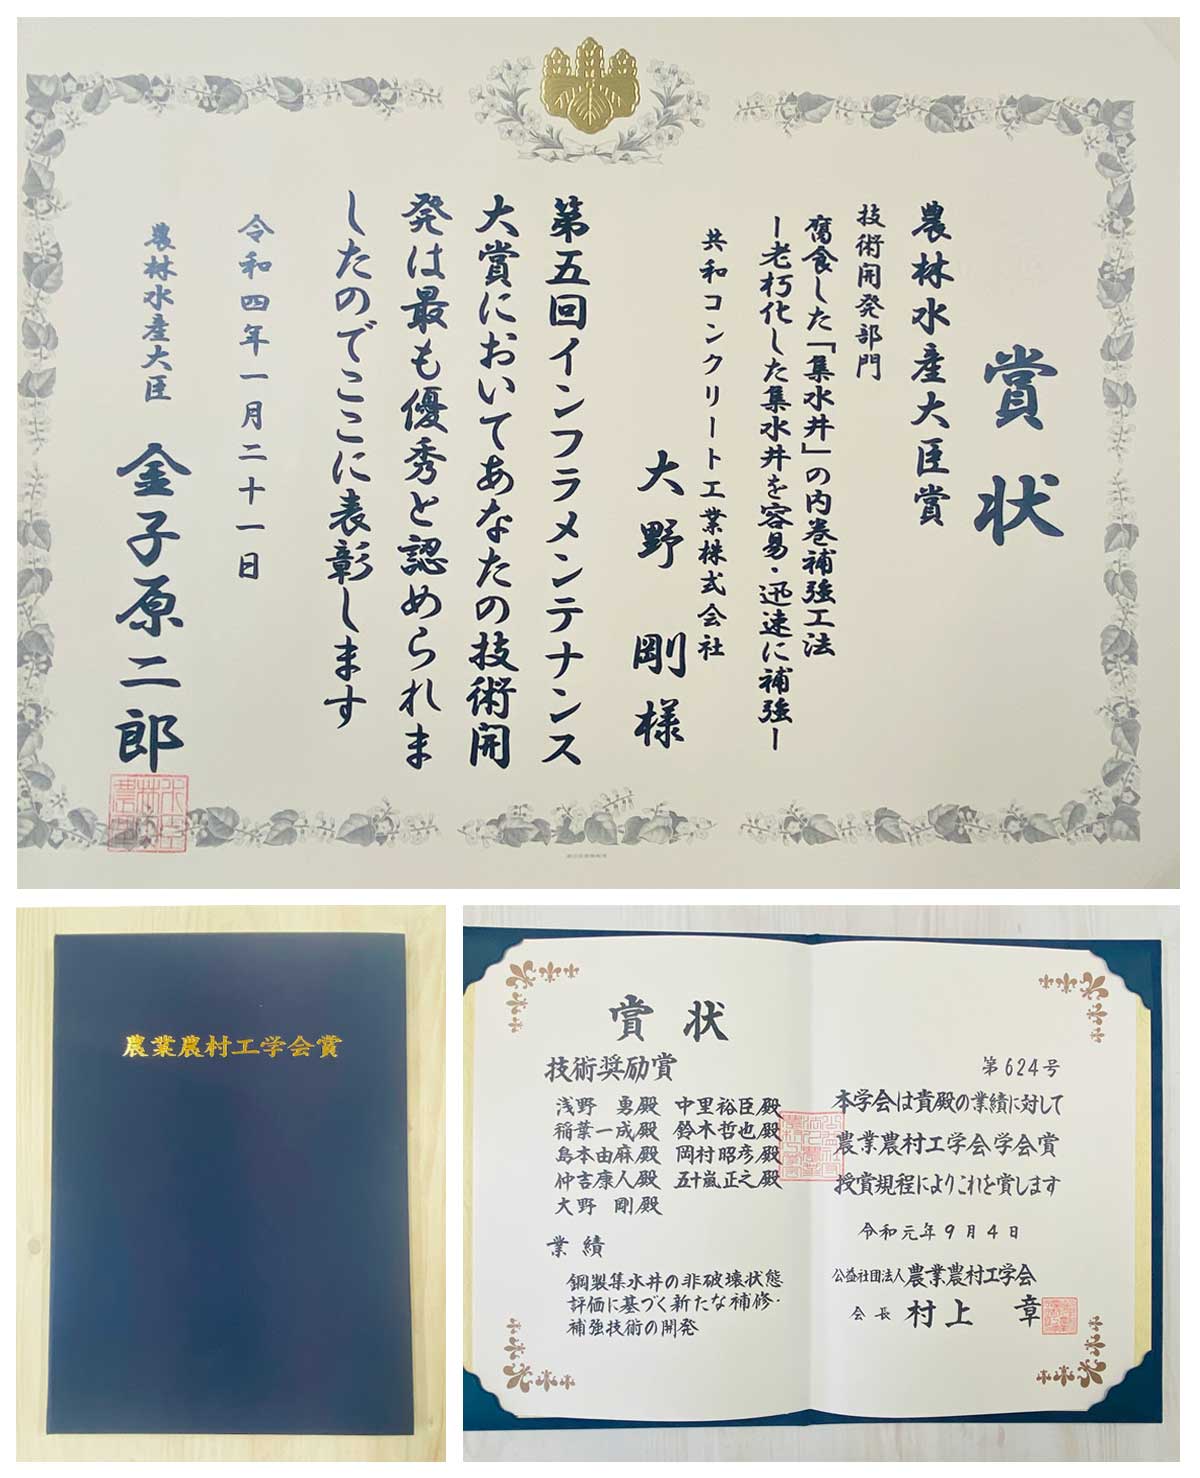 賞状
農林水産大臣賞
技術開発部門
腐食した「集水井」の内巻補強工法
ー老朽化した集水井を容易・迅速に補強ー
共和コンクリート工業株式会社
大野 剛様
第五回インフラメンテナンス
大賞においてあなたの技術開
発は最も優秀と認められま
したのでここに表彰します
令和四年一月二十一日
農林水産大臣 金子原二郎
農業農村工学会賞
賞状
技術奨励賞
浅野 勇殿 中里裕臣殿
稲葉一成殿 鈴木哲也殿
島本由麻殿 岡村昭彦殿
仲吉康人殿 五十嵐正之殿
大野 剛殿
業績
鋼製集水井の非破壊状態
評価に基づく新たな補修・
補強技術の開発
第624号
本学会は貴殿の業績に対して
農業農村工学会学会賞
授賞規程によりこれを賞します
令和元年9月4日
公益社団法人農業農村工学会
会長 村上 章